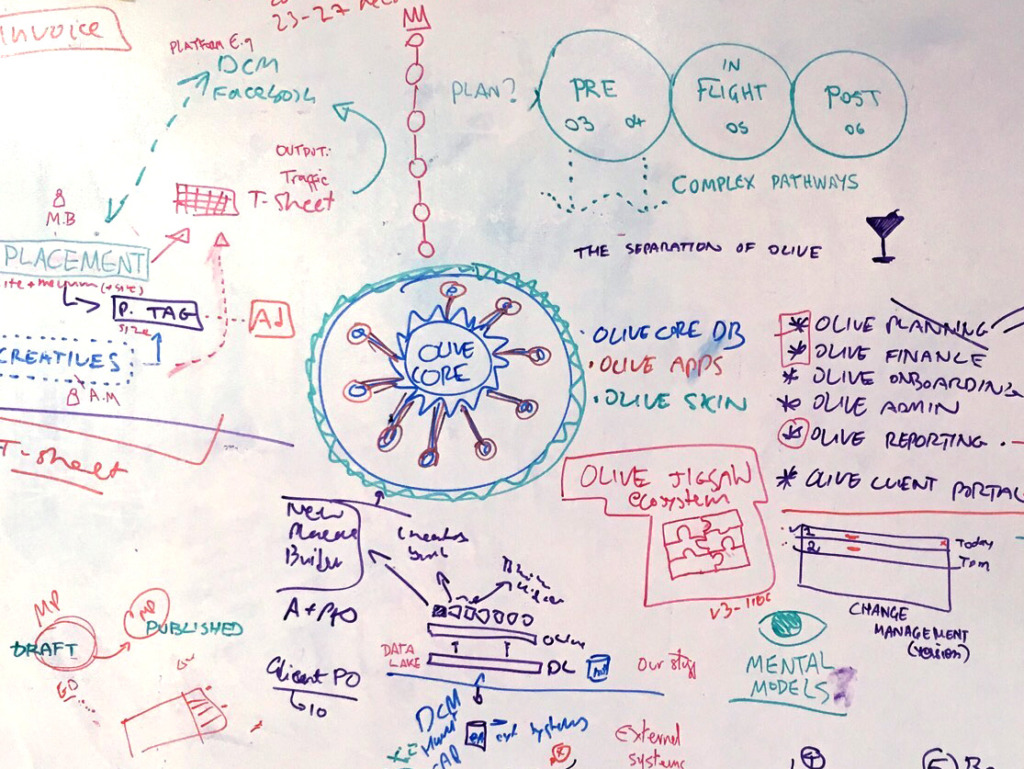 Invoice
23-27
PLATFORM E.g
DCM
Facebook
OUTPUT:
Traffic
T-Sheet
M.B
PLACEMENT
P. TAG
size
Ad
CREATIVES
A.M
T-sheet
PLAN?
PRE
03 04
IN
FLIGHT
05
POST
06
COMPLEX PATHWAYS
THE SEPARATION OF OLIVE
OLIVE
CORE
· OLIVE CORE DB
· OLIVE APPS
· OLIVE SKIN
* OLIVE PLANNING
* OLIVE FINANCE
* OLIVE ONBOARDING
* OLIVE ADMIN
* OLIVE REPORTING
* OLIVE CLIENT PORTAL
OLIVE JIGSAW
ecosystem
1
2
Today
Tom
CHANGE
MANAGEMENT
(version)
MENTAL
MODELS
New
Builder
MP
DRAFT
MP
PUBLISHED
Client PO
DATA
LAKE
DC
Our stuff
DCM
ext systems
External
systems